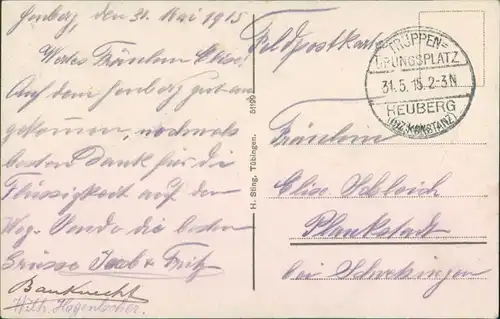 Heuberg, den 31. Mai 1915
Wertes Fräulein Elise!
Auf dem Heuberg gut an-
gekommen, nochmals
besten Dank für die
Flüssigkeit auf den
Weg. Sende die besten
Grüsse Jacob & Fritz
Bauknecht
Wilh. Hagenlocher.
H. Sting, Tübingen. 5199
Feldpostkarte
TRUPPEN=
ÜBUNGSPLATZ
31.5.15.2-3N
HEUBERG
(BZ. KONSTANZ)
Fräulein
Elise Schleich
Plankstadt
bei Schwetzingen